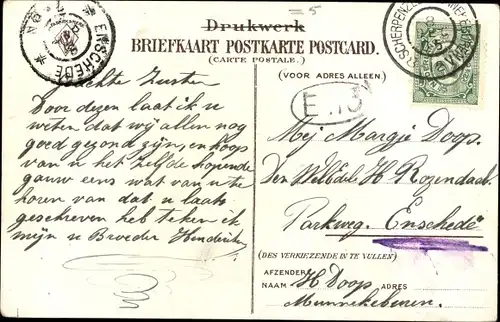 Drukwerk
BRIEFKAART POSTKARTE POSTCARD.
(CARTE POSTALE.)
(VOOR ADRES ALLEEN)
ENSCHEDE
Zuster
Door dezen laat ik u
weten dat wij allen nog
goed gezond zijn, en hoop
van u het zelfde hopende
gauw eens wat van u te
horen van dat u laats
geschreven heb teken ik
mijn u Broeder Henderik
Mej Margje Doop.
Den WelEdel H Rozendaal
Parkweg. Enschede
(DES VERKIEZENDE IN TE VULLEN)
AFZENDER H Doop
NAAM ADRES
Munnekeburen.